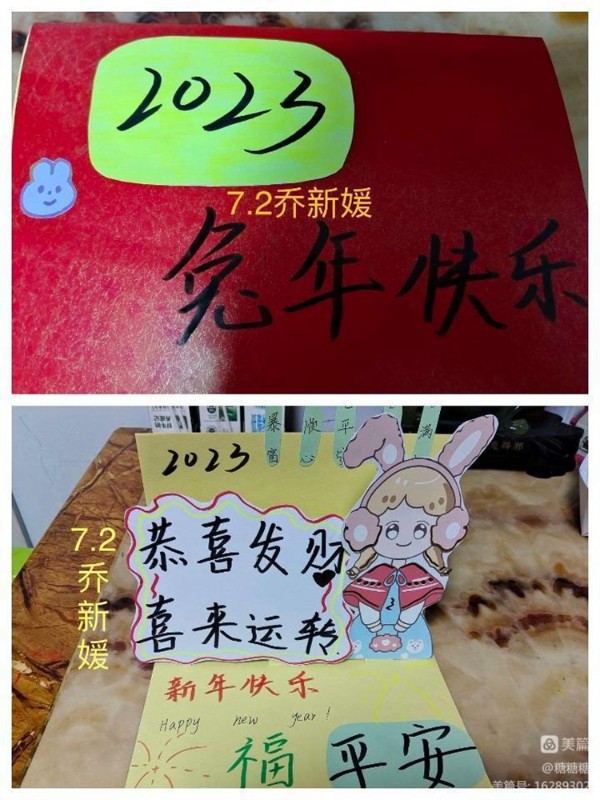 2023
7.2乔新媛
兔年快乐
暴富
顺心
平
满
2023
7.2
乔新媛
恭喜发财
喜来运转
新年快乐
Happy new year!
福
平安
美篇
@糖糖糖
美篇号: 16289302